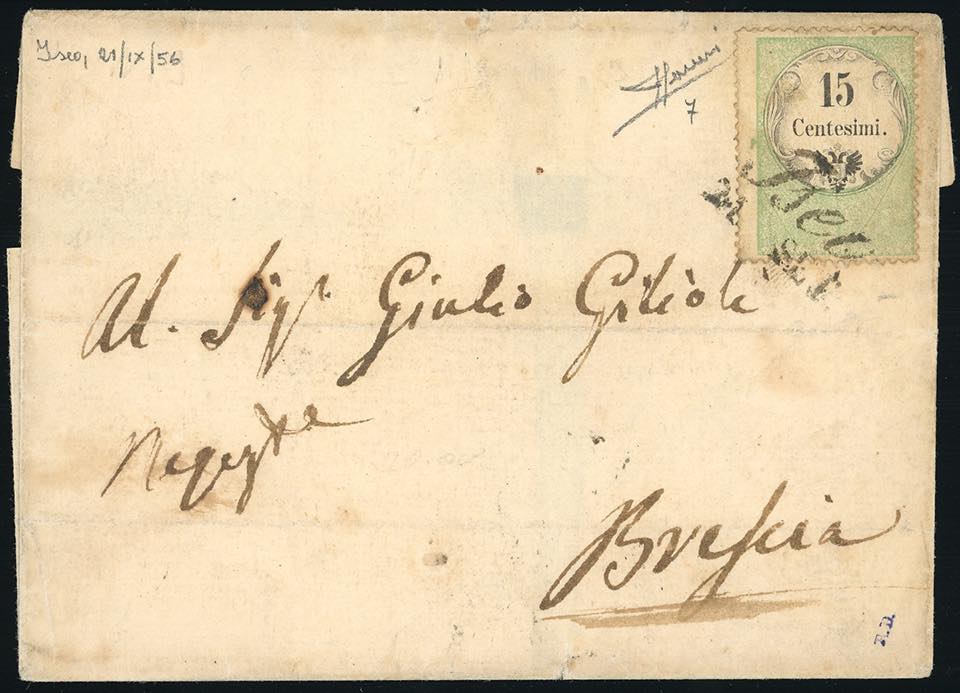 Iseo, 21/IX/56
7
15
Centesimi.
Iseo
Al. Sigr Giulio
Negozte
Brescia